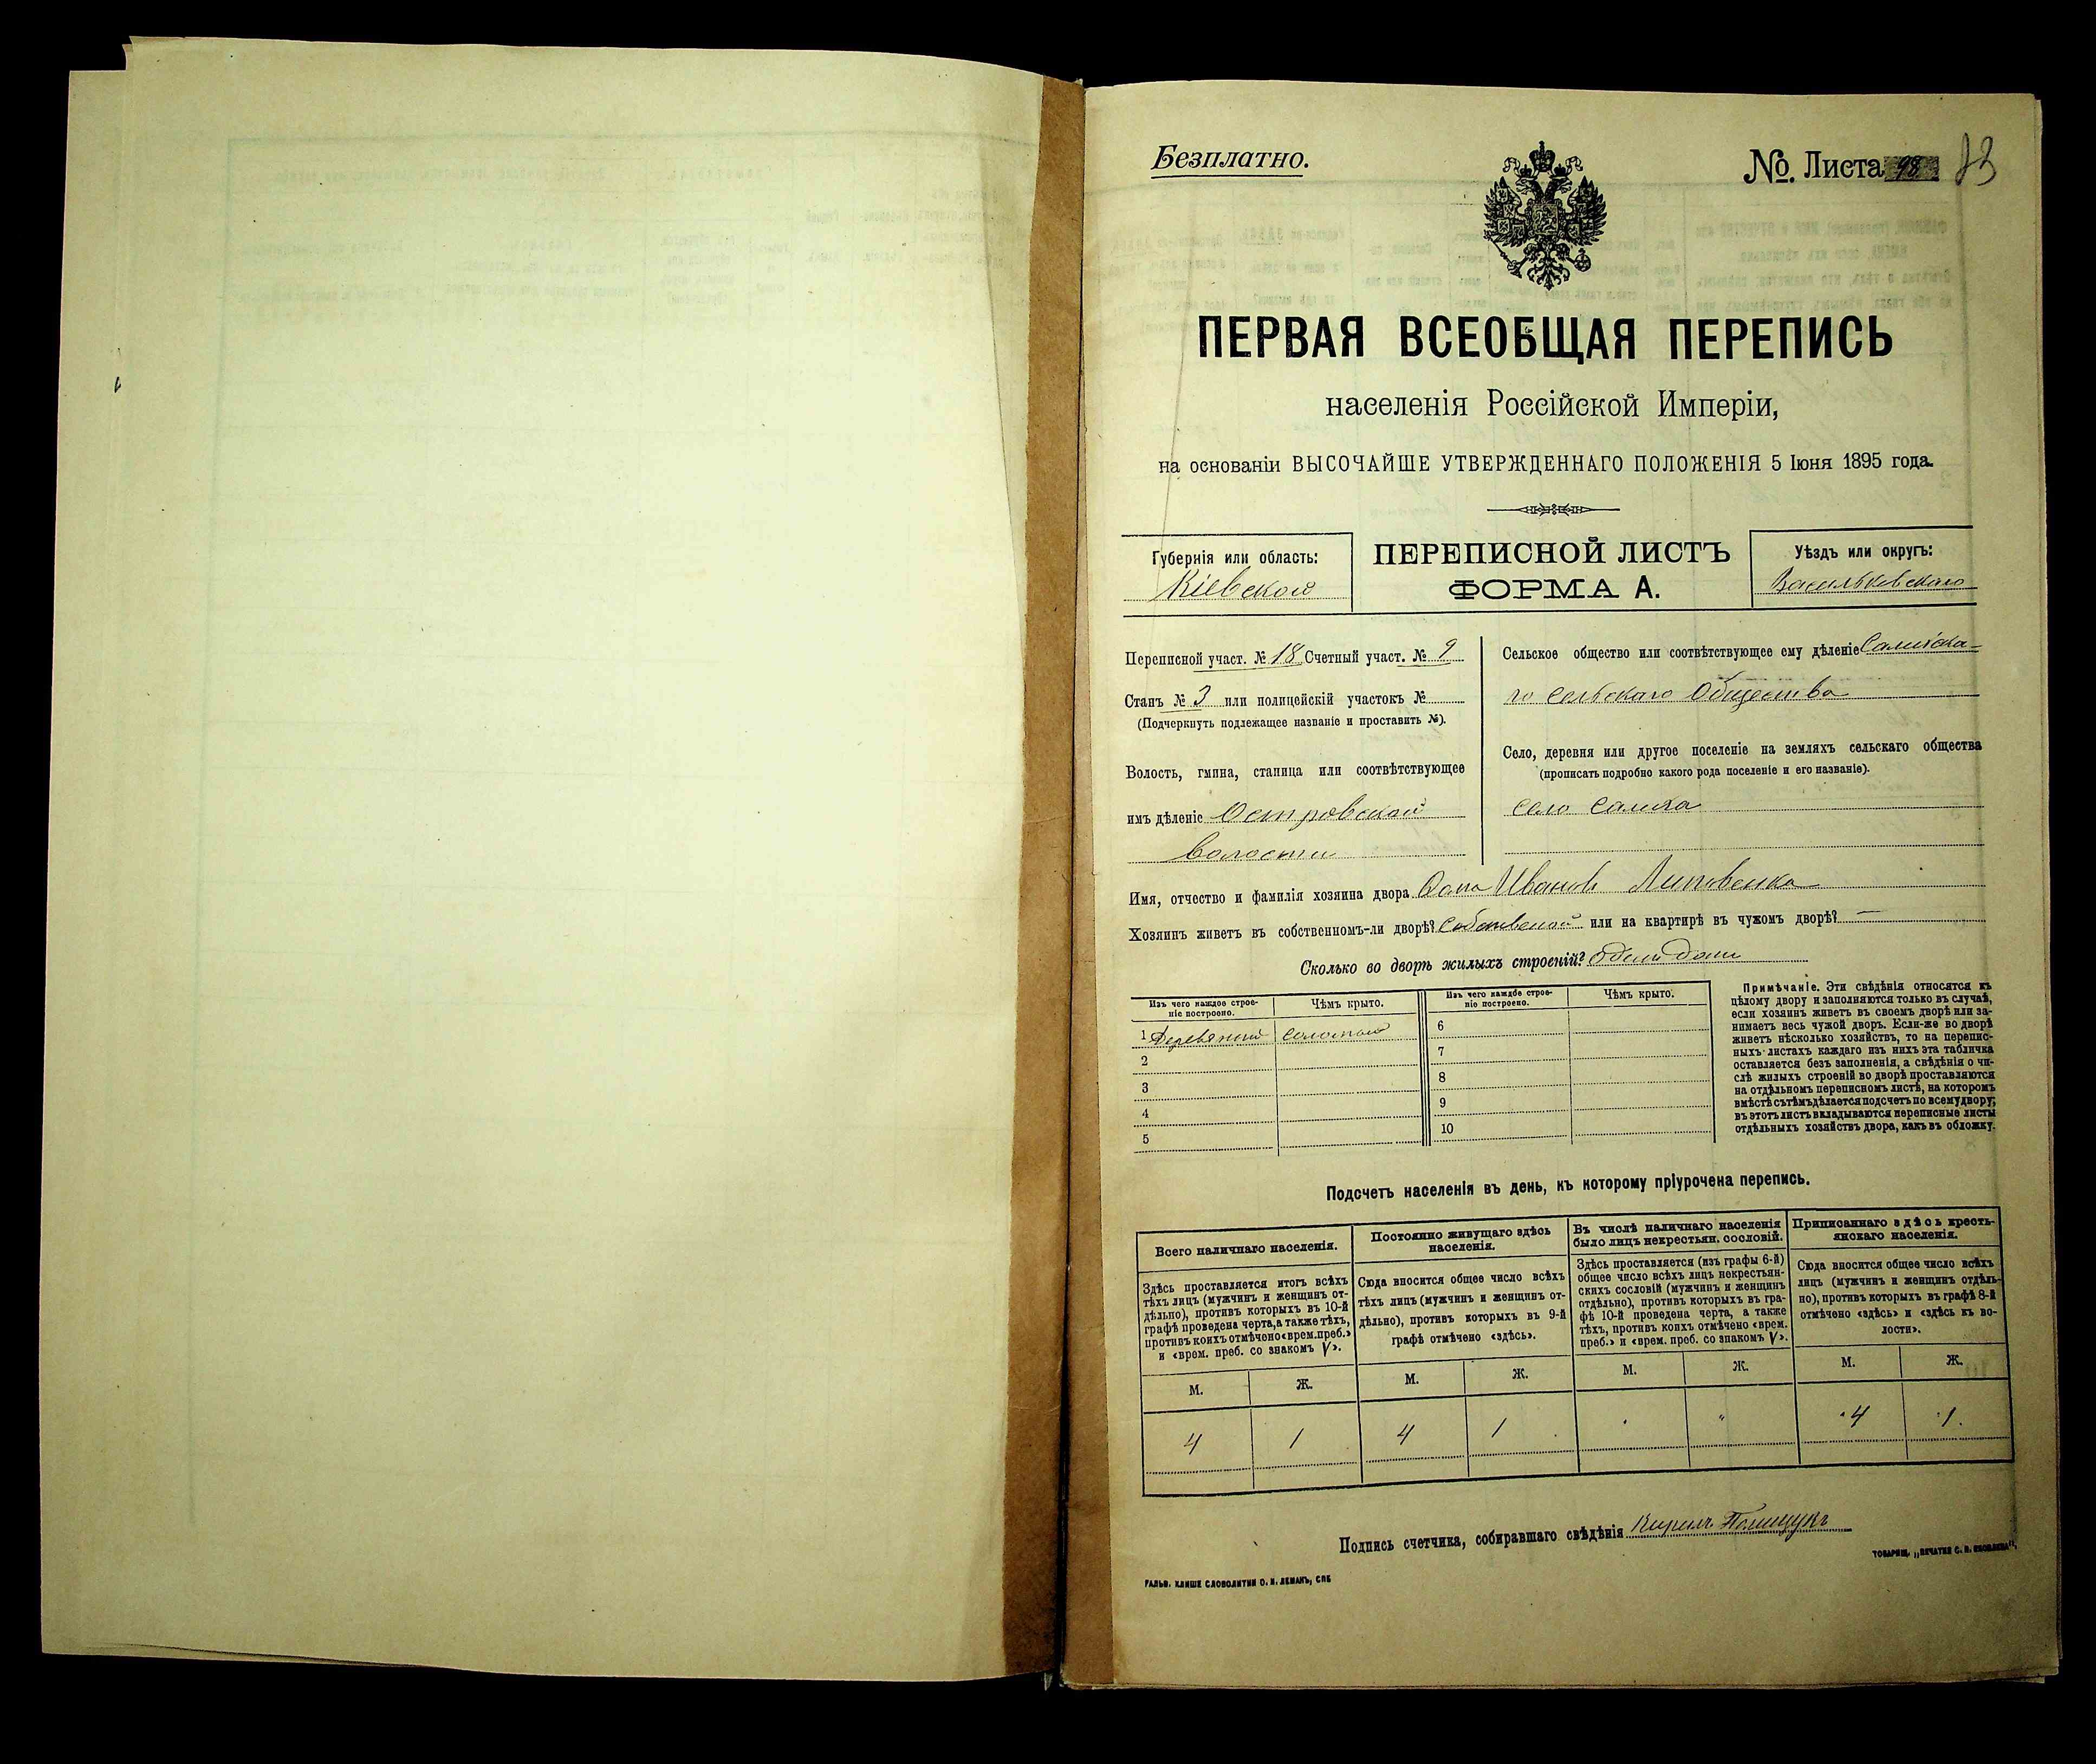 Безплатно.
№. Листа 98
83
ПЕРВАЯ ВСЕОБЩАЯ ПЕРЕПИСЬ
населенія Россійской Имперіи,
на основаніи ВЫСОЧАЙШЕ УТВЕРЖДЕННАГО ПОЛОЖЕНІЯ 5 Іюня 1895 года.
Губернія или область:
Кіевской
ПЕРЕПИСНОЙ ЛИСТЪ
ФОРМА А.
Уѣздъ или округъ:
Васильковскаго
Переписной участ. № 18 Счетный участ. № 9
Станъ № 3 или полицейскій участокъ №
(Подчеркнуть подлежащее названіе и проставить №).
Волость, гмина, станица или соотвѣтствующее
имъ дѣленіе Островской
Волости
Сельское общество или соотвѣтствующее ему дѣленіе Салихска-
го сельскаго Общества
Село, деревня или другое поселеніе на земляхъ сельскаго общества
(прописать подробно какого рода поселеніе и его названіе).
село Салиха
Имя, отчество и фамилія хозяина двора Иванов Литвенко
Хозяинъ живетъ въ собственномъ-ли дворѣ? Собственой или на квартирѣ въ чужомъ дворѣ? —
Сколько во дворѣ жилыхъ строеній? Один дом
Изъ чего каждое строе-
ніе построено.
Чѣмъ крыто.
Изъ чего каждое строе-
ніе построено.
Чѣмъ крыто.
1 Деревяний соломой
2
3
4
5
6
7
8
9
10
Примѣчаніе. Эти свѣдѣнія относятся къ
цѣлому двору и заполняются только въ случаѣ,
если хозяинъ живетъ въ своемъ дворѣ или за-
нимаетъ весь чужой дворъ. Если-же во дворѣ
живетъ нѣсколько хозяйствъ, то на перепис-
ныхъ листахъ каждаго изъ нихъ эта табличка
оставляется безъ заполненія, а свѣдѣнія о чи-
слѣ жилыхъ строеній во дворѣ проставляются
на отдѣльномъ переписномъ листѣ, на которомъ
вмѣстѣ съ тѣмъ дѣлается подсчетъ по всему двору;
въ этотъ листъ вкладываются переписные листы
отдѣльныхъ хозяйствъ двора, какъ въ обложку.
Подсчетъ населенія въ день, къ которому пріурочена перепись.
Всего наличнаго населенія.
Здѣсь проставляется итогъ всѣхъ
тѣхъ лицъ (мужчинъ и женщинъ от-
дѣльно), противъ которыхъ въ 10-й
графѣ проведена черта, а также тѣхъ,
противъ коихъ отмѣчено «врем. преб.»
и «врем. преб. со знакомъ V».
М. Ж.
4 1
Постоянно живущаго здѣсь
населенія.
Сюда вносится общее число всѣхъ
тѣхъ лицъ (мужчинъ и женщинъ от-
дѣльно), противъ которыхъ въ 9-й
графѣ отмѣчено «здѣсь».
М. Ж.
4 1
Въ числѣ наличнаго населенія
было лицъ некрестьян. сословій.
Здѣсь проставляется (изъ графы 6-й)
общее число всѣхъ лицъ некрестьян-
скихъ сословій (мужчинъ и женщинъ
отдѣльно), противъ которыхъ въ гра-
фѣ 10-й проведена черта, а также
тѣхъ, противъ коихъ отмѣчено «врем.
преб.» и «врем. преб. со знакомъ V».
М. Ж.
Приписаннаго здѣсь кресть-
янскаго населенія.
Сюда вносится общее число всѣхъ
лицъ (мужчинъ и женщинъ отдѣль-
но), противъ которыхъ въ графѣ 8-й
отмѣчено «здѣсь» и «здѣсь къ во-
лости».
М. Ж.
4 1.
Подпись счетчика, собиравшаго свѣдѣнія Кирилъ Полищукъ
ГАЛЬВ. КЛИШЕ СЛОВОЛИТНИ О. И. ЛЕМАНЪ, СПБ
ТОВАРИЩ. „ПЕЧАТНЯ С. П. ЯКОВЛЕВА".